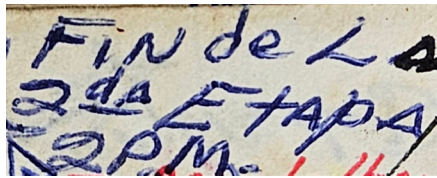 FIN de LA
2da ETAPA
2PM.